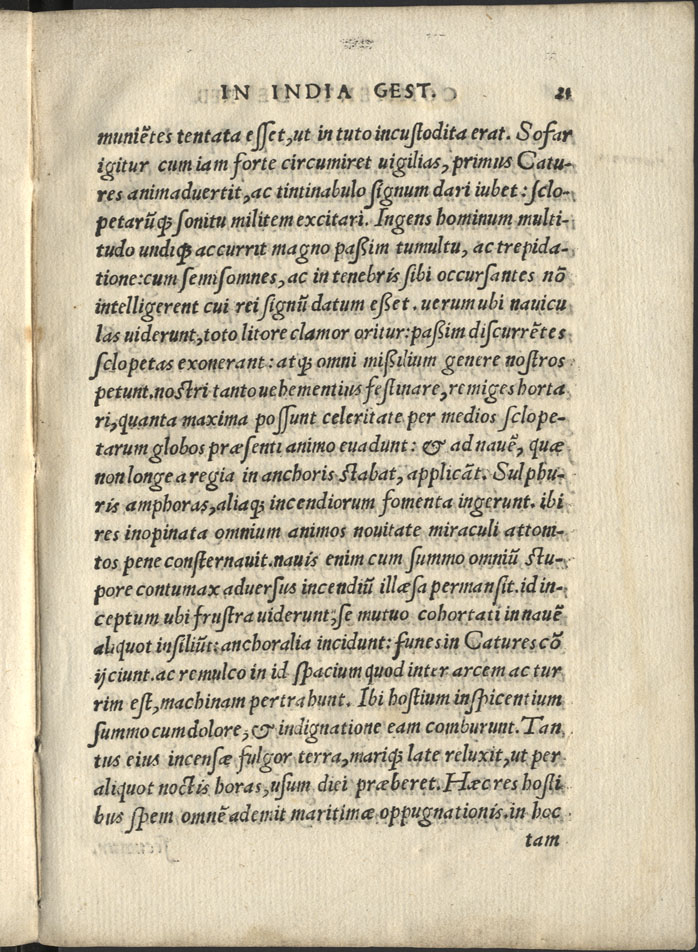 IN INDIA GEST. 21
muniẽtes tentata eſſet, ut in tuto incuſtodita erat. Sofar
igitur cum iam forte circumiret uigilias, primus Catu-
res animaduertit, ac tintinabulo ſignum dari iubet: ſclo-
petarũq; ſonitu militem excitari. Ingens hominum multi-
tudo undiq; accurrit magno paßim tumultu, ac trepida-
tione: cum ſemiſomnes, ac in tenebris ſibi occurſantes nõ
intelligerent cui rei ſignũ datum eßet. uerum ubi nauicu
las uiderunt, toto litore clamor oritur: paßim diſcurrẽtes
ſclopetas exonerant: atq; omni mißilium genere noſtros
petunt. noſtri tanto uehementius feſtinare, remiges horta
ri, quanta maxima poſſunt celeritate per medios ſclope-
tarum globos præſenti animo euadunt: & ad nauẽ, quæ
non longe a regia in anchoris ſtabat, applicãt. Sulphu-
ris amphoras, aliaq; incendiorum fomenta ingerunt. ibi
res inopinata omnium animos nouitate miraculi attoni-
tos pene conſternauit. nauis enim cum ſummo omniũ ſtu-
pore contumax aduerſus incendiũ illæſa permanſit. id in-
ceptum ubi fruſtra uiderunt, ſe mutuo cohortati in nauẽ
aliquot inſiliũt: anchoralia incidunt: funes in Catures cõ
ijciunt. ac remulco in id ſpacium quod inter arcem ac tur
rim eſt, machinam pertrahunt. Ibi hoſtium inſpicentium
ſummo cum dolore, & indignatione eam comburunt. Tan
tus eius incenſæ fulgor terra, mariq; late reluxit, ut per
aliquot noctis horas, uſum diei præberet. Hæc res hoſti
bus ſpem omnẽ ademit maritimæ oppugnationis. in hoc
tam